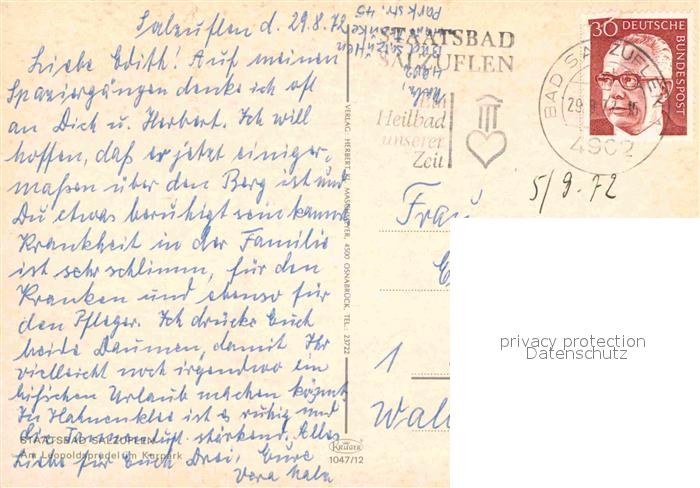 Salzuflen d. 29.8.72
Liebe Edith! Auf meinen
Spaziergängen denke ich oft
an Dich u. Herbert. Ich will
hoffen, daß er jetzt einiger-
maßen über den Berg ist und
Du etwas beruhigt sein kannst
Krankheit in der Familie
ist sehr schlimm, für den
Kranken und ebenso für
den Pfleger. Ich drücke Euch
beide Daumen, damit Ihr
vielleicht noch irgendwo ein
bißchen Urlaub machen könnt.
In Hahnenklee ist es ruhig und
die stärkend. Alles
Liebe für Euch Drei, Eure
Vera
STAATSBAD SALZUFLEN
Am Leopoldsprudel im Kurpark
VERLAG HERBERT M. 4500 OSNABRÜCK, TEL.: 23722
KRÜGER
1047/12
Parkstr. 45
4902
STAATSBAD
SALZUFLEN
Ein
Heilbad
unserer
Zeit
30 DEUTSCHE
BUNDESPOST
BAD SALZUFLEN
29.8.72
4902
5/9.72
Frau
1
Wal
privacy protection
Datenschutz